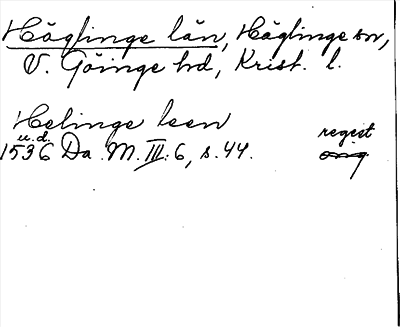 Häglinge län, Häglinge sn,
V. Göinge hd, Krist. l.
Helinge leen
u.d. regist
1536 Da. M. III: 6, s. 44. orig